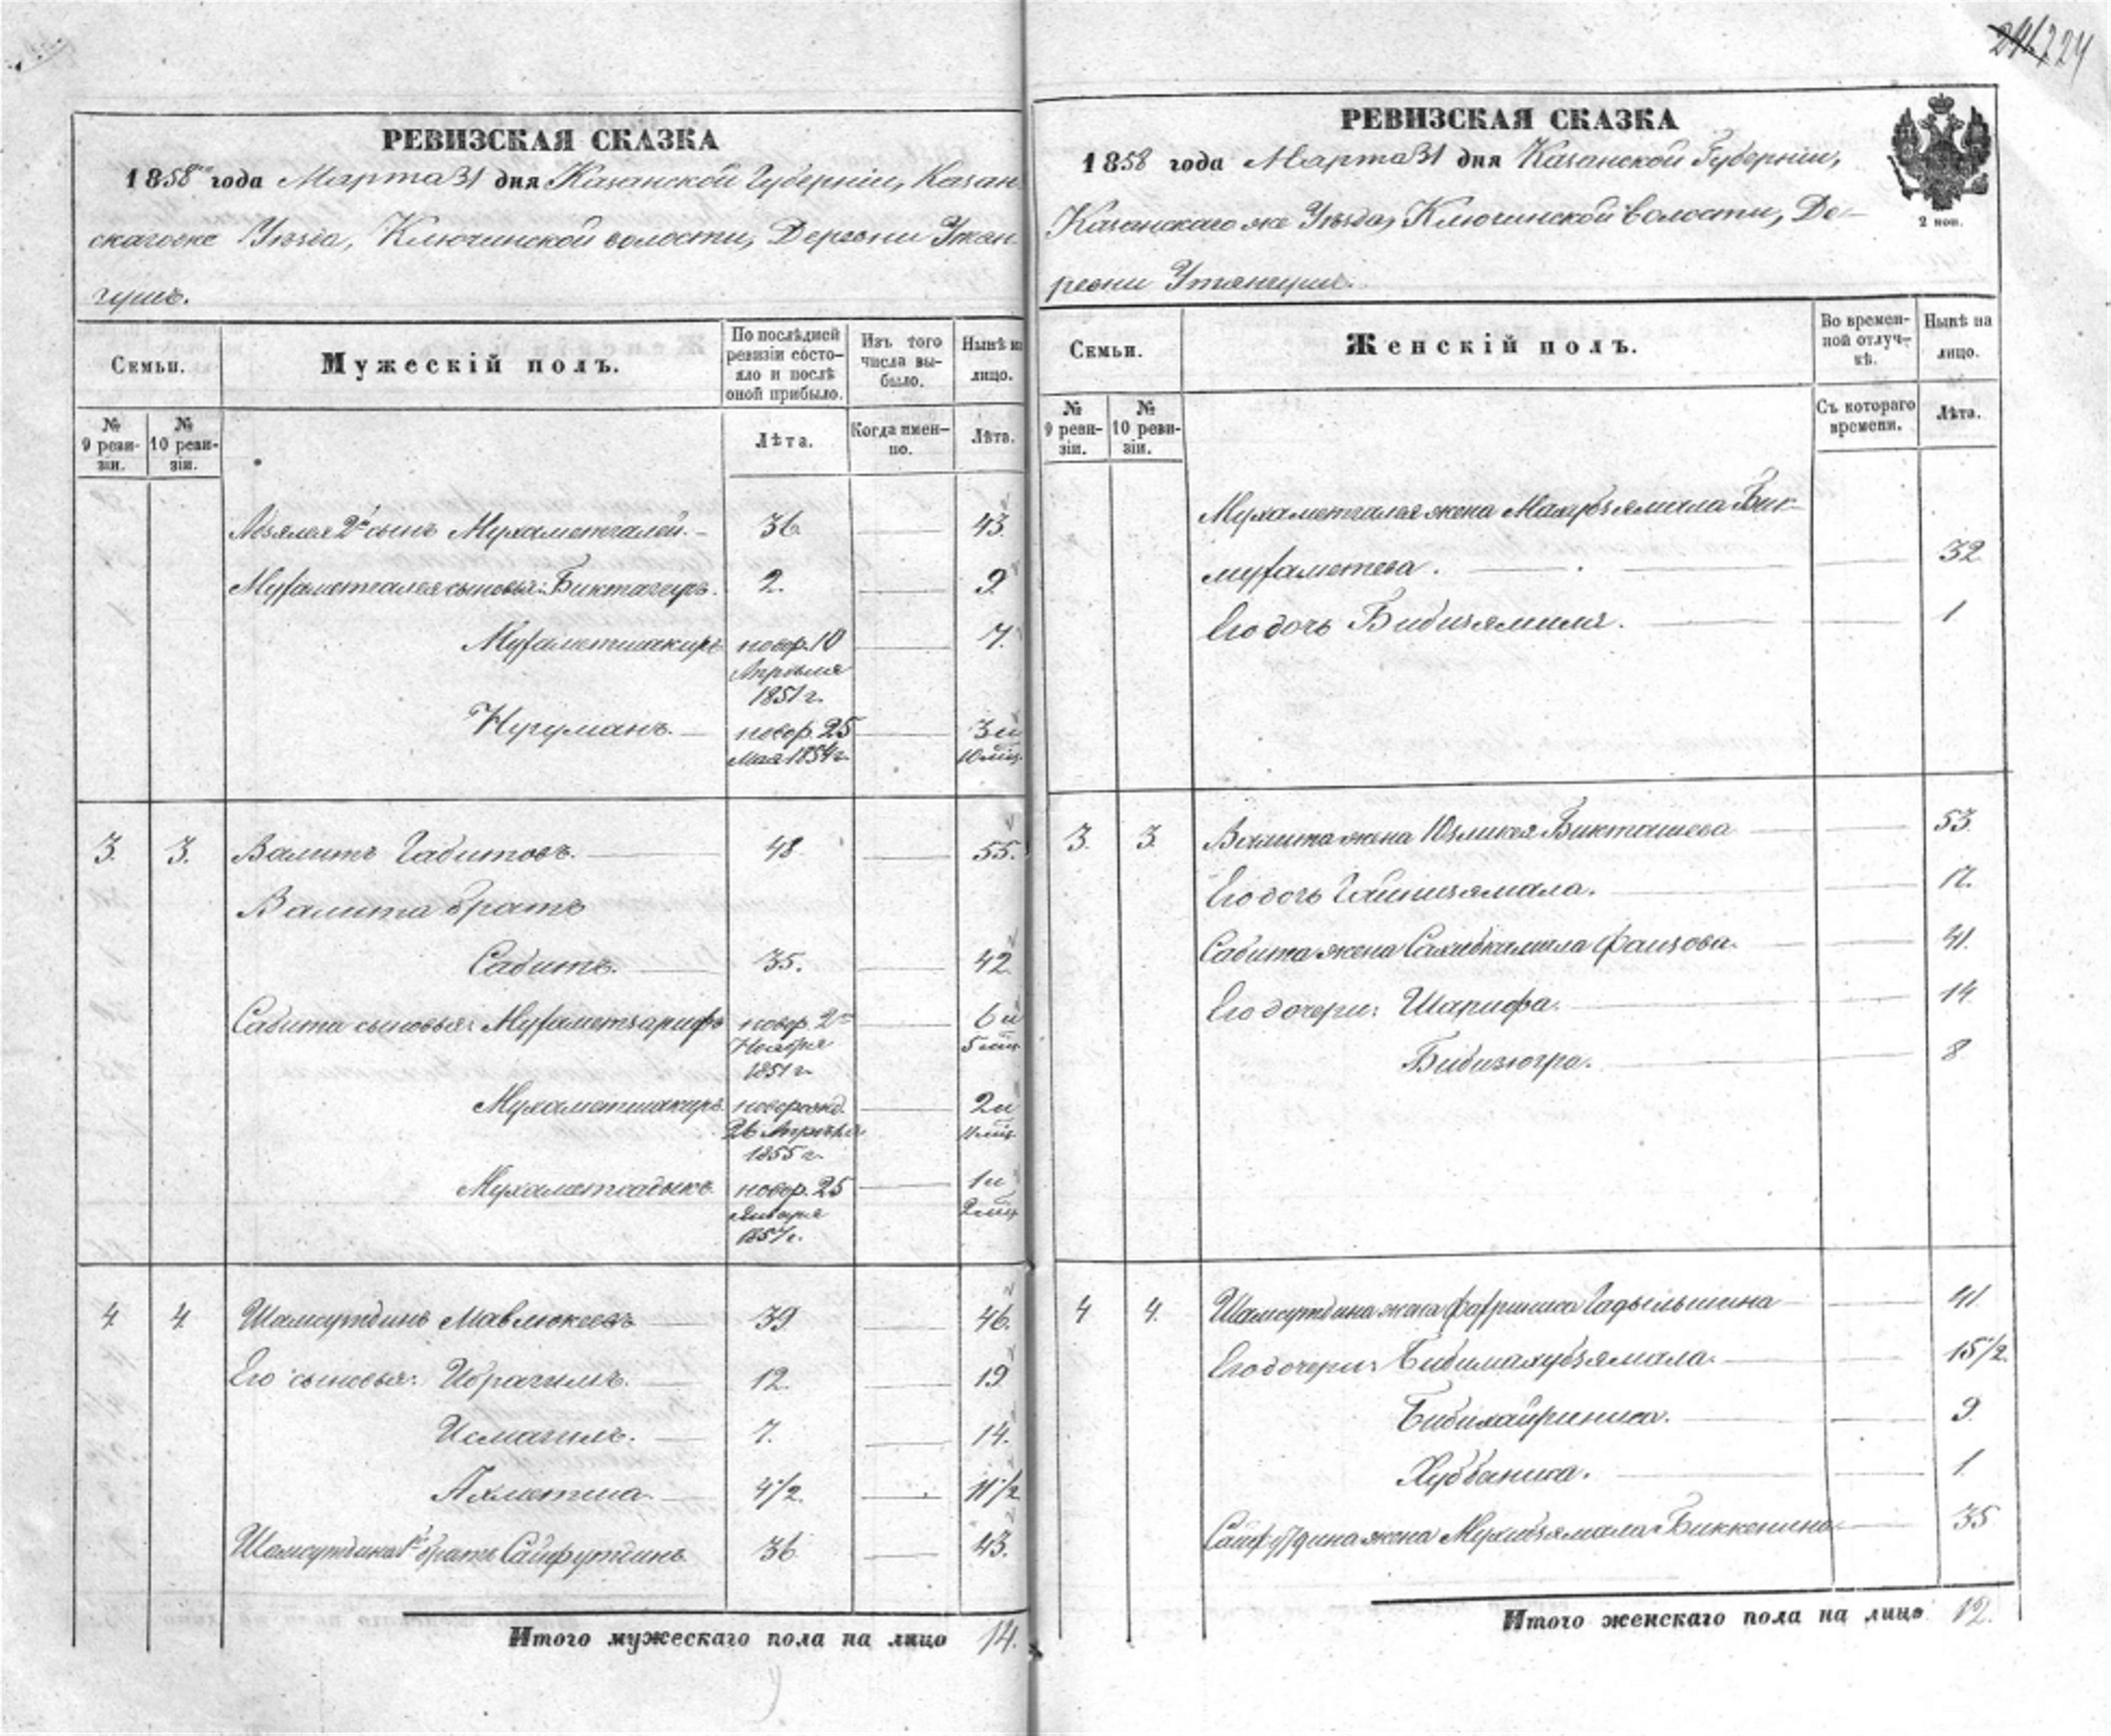 224
РЕВИЗСКАЯ СКАЗКА
1858 года Марта 31 дня Казанской Губернiи, Казан
скагоже Уѣзда, Ключинской волости, Деревни
гушъ.
Семьи.
Мужескiй полъ.
По послѣдней ревизiи состо-яло и послѣ оной прибыло.
Изъ того числа вы-было.
Нынѣ на лицо.
№ 9 реви-зiи.
№ 10 реви-зiи.
Лѣта.
Когда имен-но.
Лѣта.
2й сынъ Мухаметгалей. 36. 43.
Мухаметгалея сыновья: Биктагиръ. 2. 9.
Мухаметшакиръ новор. 10 Апрѣля 1851 г. 7.
Нугуманъ. новор. 25 Мая 1854 г. 3 и 10 мѣц.
3. 3. Валитъ Габитовъ. 48. 55.
Валита братъ
Сабитъ. 35. 42.
Сабита сыновья: Мухаметзарифъ новор. 2го Ноября 1851 г. 6 и 5 мѣц.
Мухаметшакиръ новорожд. 26 Апрѣля 1855 г. 2 и 11 мѣц.
Мухаметсадыкъ новор. 25 Января 1857 г. 1 и 2 мѣц.
4. 4. Шамсутдинъ Мавлюкеевъ 39. 46.
Его сыновья: Ибрагимъ. 12. 19.
Исмагилъ. 7. 14.
Ахметша. 4 1/2. 11 1/2
Шамсутдина 1й братъ Сайфутдинъ 36 43.
Итого мужескаго пола на лицо 14.
РЕВИЗСКАЯ СКАЗКА
1858 года Марта 31 дня Казанской Губернiи,
Казанскаго же Уѣзда, Ключинской волости, Де-
ревни Утянгушъ.
2 коп.
Семьи.
Женскiй полъ.
Во времен-ной отлуч-кѣ.
Нынѣ на лицо.
№ 9 реви-зiи.
№ 10 реви-зiи.
Съ котораго времени.
Лѣта.
Мухаметгалея жена Махубзямала Бик-
мухаметева. 32
Его дочь Бибизямиля. 1
3. 3. Валита жена Юзликея Бикташева 53.
Его дочь Гайнизямала. 17.
Сабита жена Сахибкамала Фаизова. 41.
Его дочери: Шарифа. 14
Бибизюгра. 8
4 4. Шамсутдина жена Фахриниса Гадыльшина 41
Его дочери: Бибимахубзямала. 15 1/2
Бибихайриниса. 9.
Хуббаниса. 1
Сайфутдина жена Мухибзямала Биккенина 35
Итого женскаго пола на лицо 12.